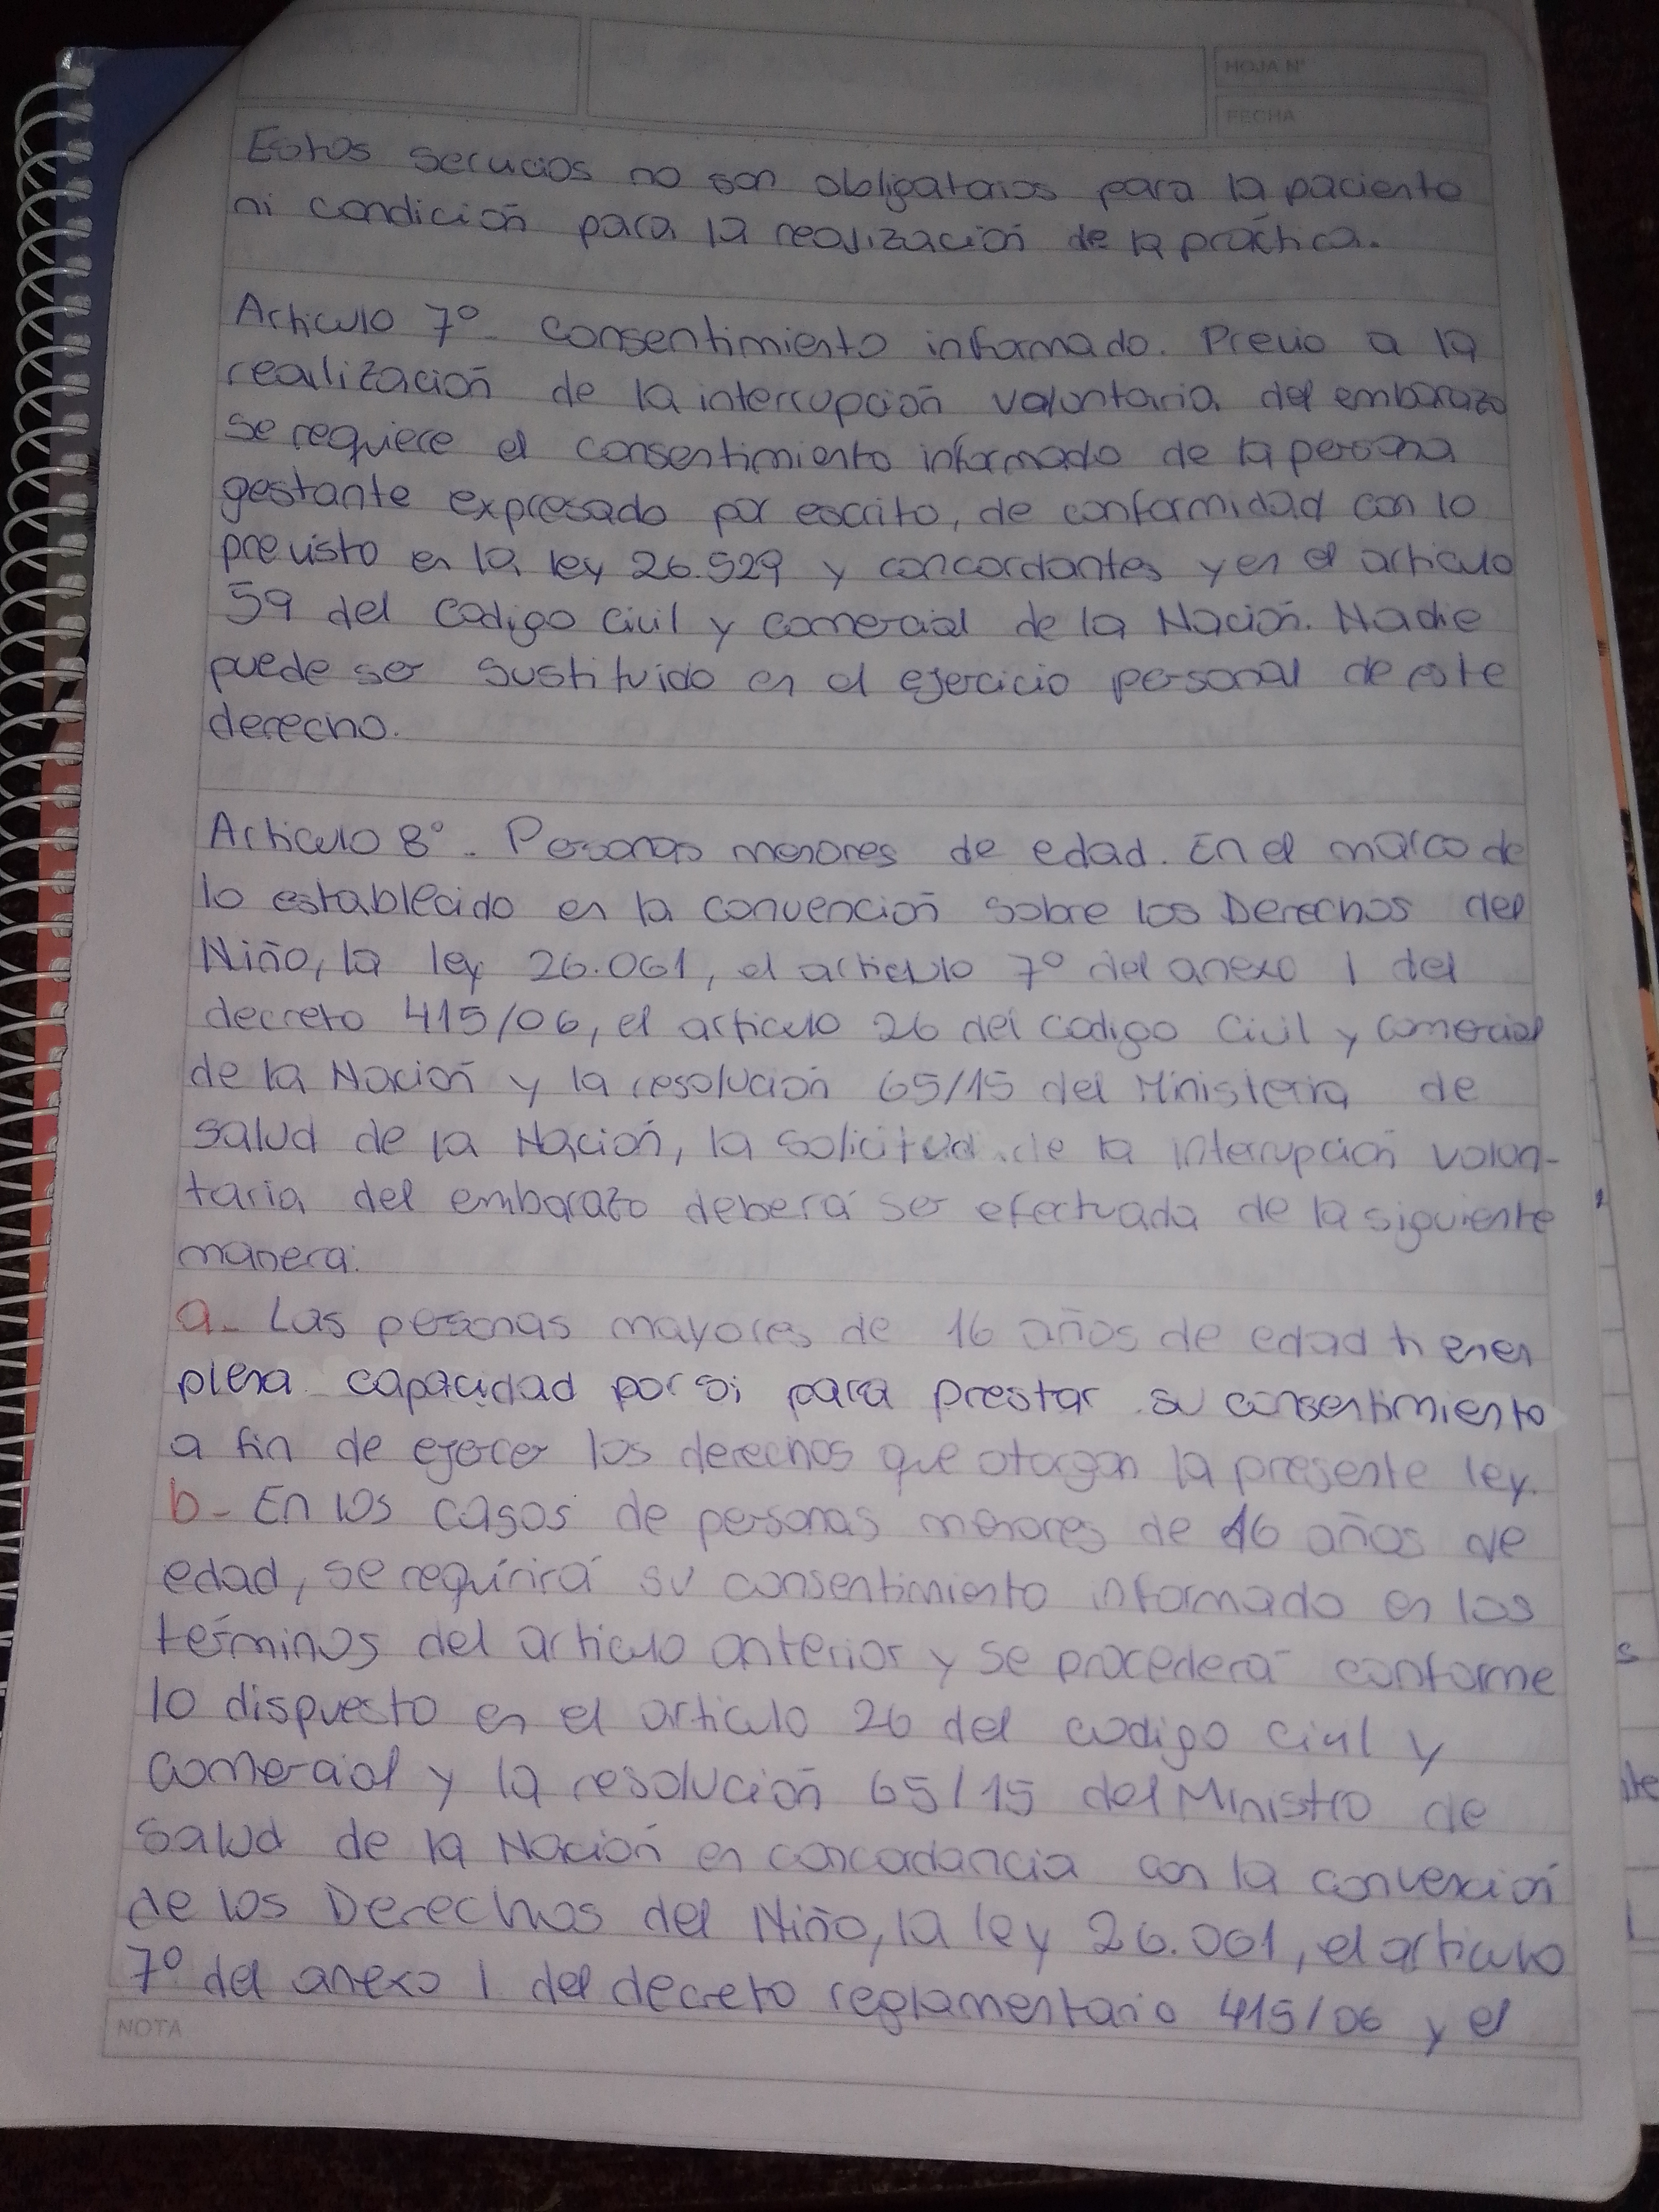 HOJA N°
FECHA
Estos servicios no son obligatorios para la paciente
ni condición para la realización de la práctica.
Articulo 7° - consentimiento informado. Previo a la
realización de la interrupción voluntaria del embarazo
se requiere el consentimiento informado de la persona
gestante expresado por escrito, de conformidad con lo
previsto en la ley 26.529 y concordantes y en el articulo
59 del Codigo Civil y Comercial de la Nación. Nadie
puede ser sustituido en el ejercicio personal de este
derecho.
Articulo 8° - Personas menores de edad. En el marco de
lo establecido en la convención sobre los Derechos del
Niño, la ley 26.061, el articulo 7° del anexo 1 del
decreto 415/06, el articulo 26 del codigo Civil y comercial
de la Nación y la resolución 65/15 del Ministerio de
salud de la Nación, la solicitud de la interrupción volun-
taria del embarazo deberá ser efectuada de la siguiente
manera:
a- Las personas mayores de 16 años de edad tienen
plena capacidad por si para prestar su consentimiento
a fin de ejercer los derechos que otorgan la presente ley.
b- En los casos de personas menores de 16 años de
edad, se requirirá su consentimiento informado en los
términos del articulo anterior y se procederá conforme
lo dispuesto en el articulo 26 del codigo Civil y
comercial y la resolución 65/15 del Ministro de
salud de la Nación en concordancia con la convención
de los Derechos del Niño, la ley 26.061, el articulo
7° del anexo 1 del decreto reglamentario 415/06 y el
NOTA